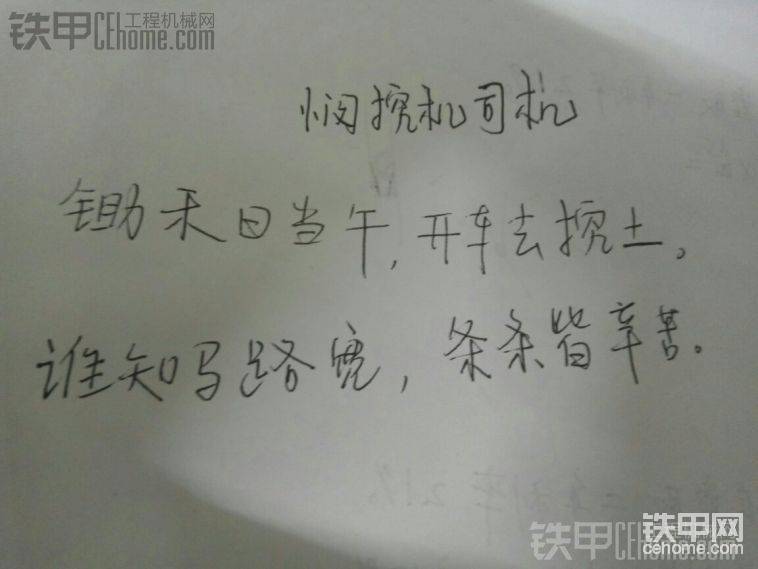 铁甲 工程机械网
CEhome.com
悯挖机司机
锄禾日当午,开车去挖土。
谁知马路宽,条条皆辛苦。
铁甲CEhome
铁甲网
cehome.com